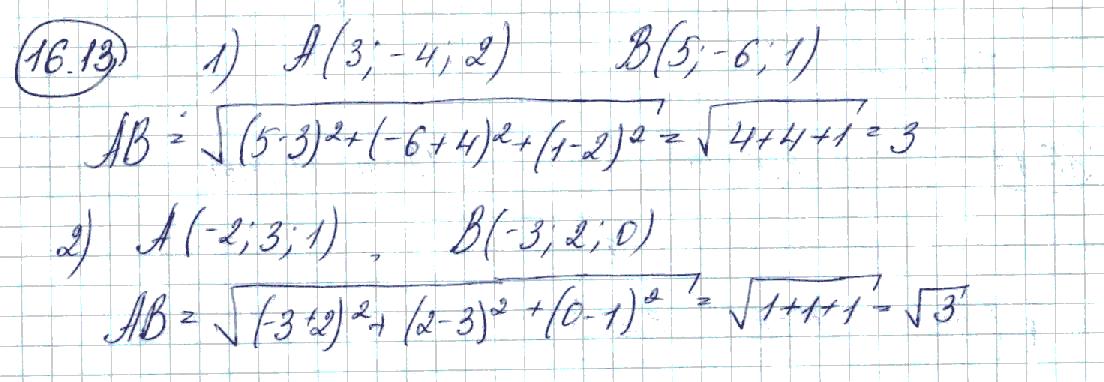 16.13 1) A(3; -4; 2) B(5; -6; 1)
AB = √((5-3)²+(-6+4)²+(1-2)²) = √(4+4+1) = 3
2) A(-2; 3; 1), B(-3; 2; 0)
AB = √((-3+2)²+(2-3)²+(0-1)²) = √(1+1+1) = √3